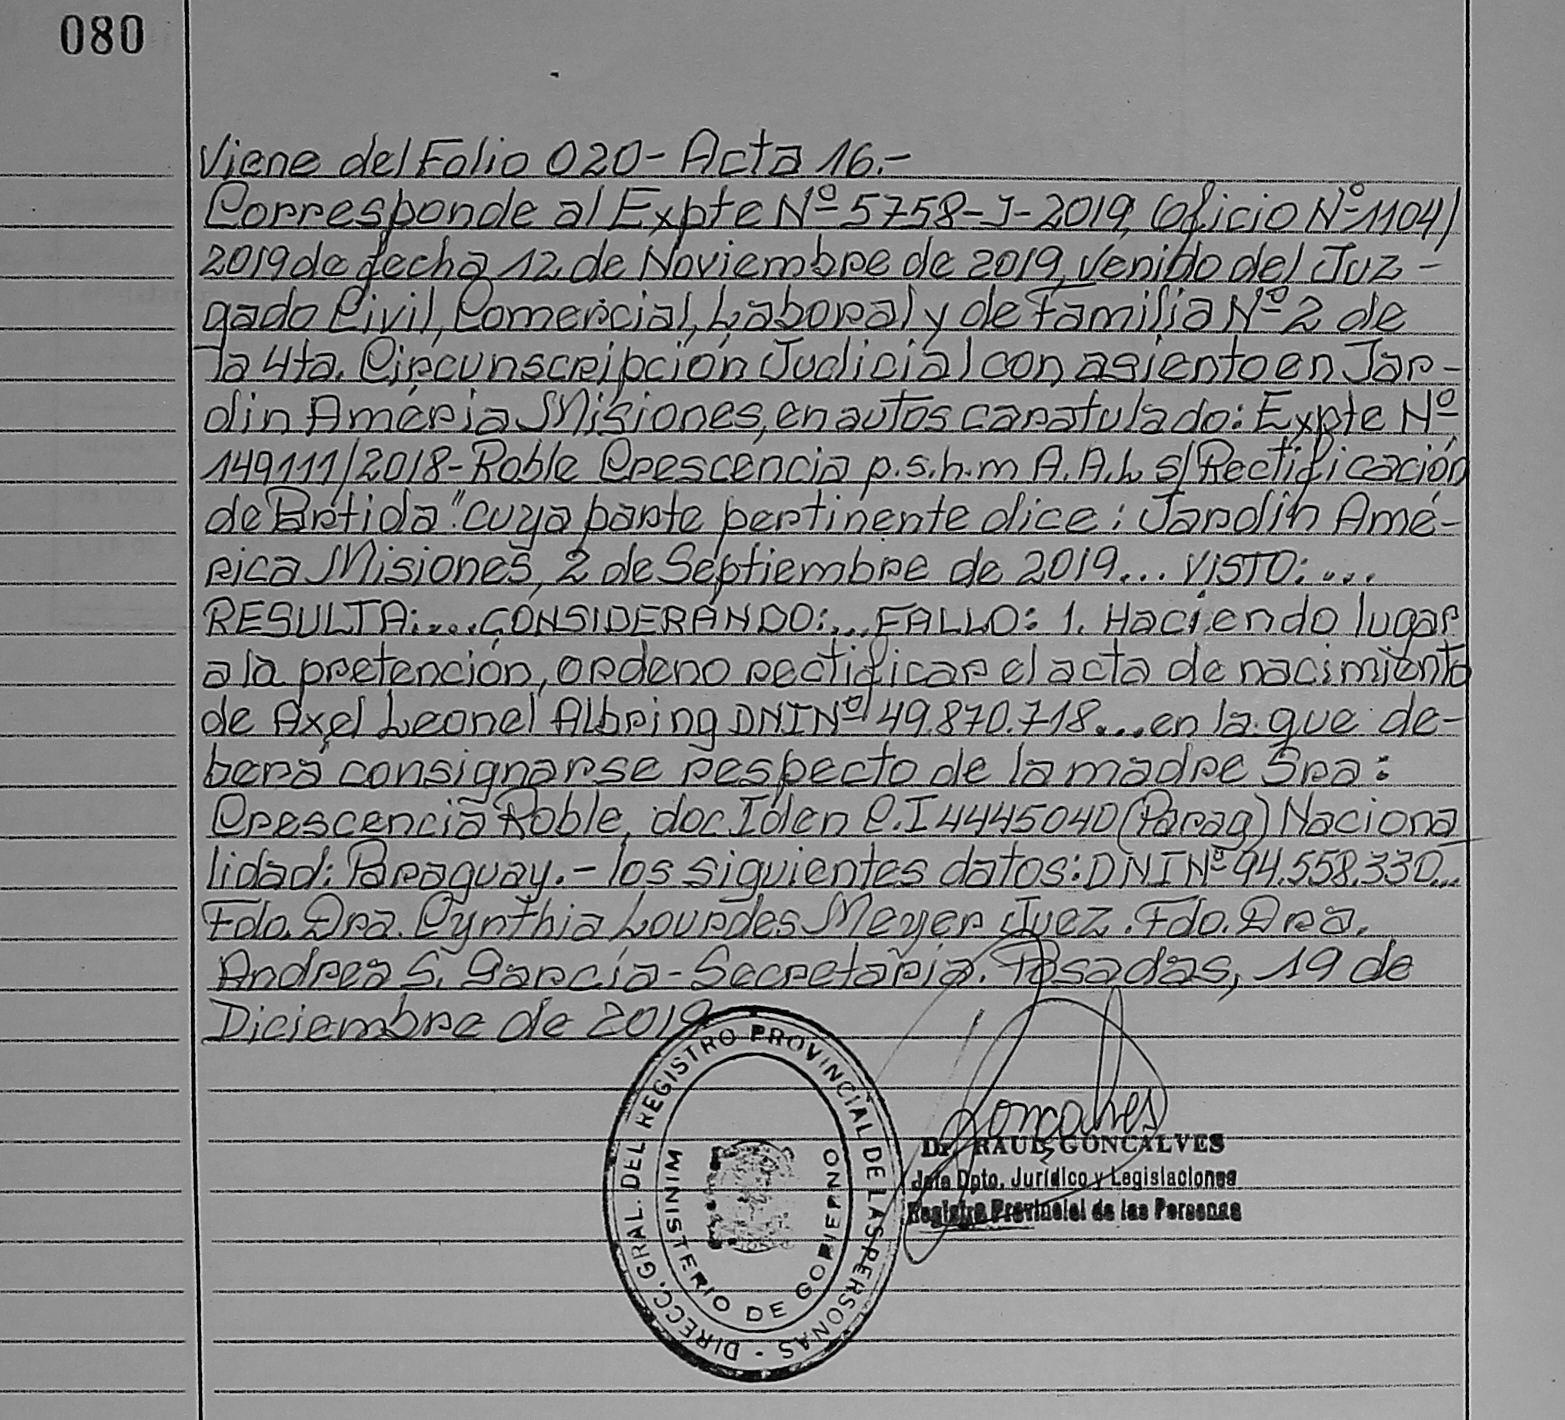 080
Viene del Folio 020- Acta 16.-
Corresponde al Expte Nº 5758-J-2019, (oficio Nº1104)
2019 de fecha 12 de Noviembre de 2019, venido del Juz-
gado Civil, Comercial, Laboral y de Familia Nº 2 de
la 4ta. Circunscripción Judicial con asiento en Jar-
din Améria Misiones, en autos caratulado: Expte Nº
149111/2018- Roble Crescencia p.s.h.m A.A.L s/ Rectificación
de Partida" cuya parte pertinente dice: Jardín Amé-
rica Misiones, 2 de Septiembre de 2019... VISTO:....
RESULTA:....CONSIDERANDO:...FALLO: 1. Haciendo lugar
a la pretención, ordeno rectificar el acta de nacimiento
de Axel Leonel Albring DNI Nº 49.870.718....en la que de-
berá consignarse respecto de la madre Sra:
Crescencia Roble, doc Iden C.I 4445040 (Parag) Naciona
lidad: Paraguay.- los siguientes datos: DNI Nº 94.558.330...
Fdo. Dra. Cynthia Lourdes Meyer Juez. Fdo. Dra.
Andrea S. García- Secretaria. Posadas, 19 de
Diciembre de 2019
DIRECC. GRAL. DEL REGISTRO PROVINCIAL DE LAS PERSONAS -
MINISTERIO DE GOBIERNO
Goncalves
Dr. RAUL GONCALVES
Jefe Dpto. Jurídico y Legislaciones
Registro Provincial de las Personas